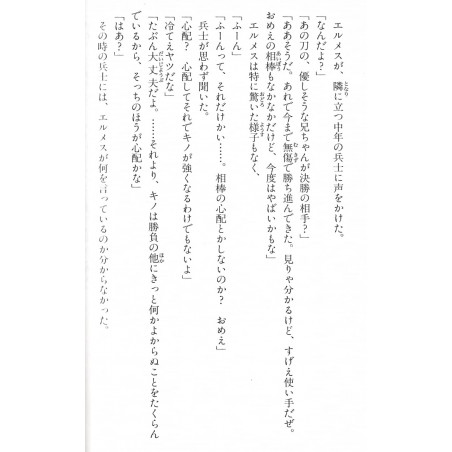 エルメスが、隣に立つ中年の兵士に声をかけた。
「なんだよ？」
「あの刀の、優しそうな兄ちゃんが決勝の相手？」
「ああそうだ。あれで今まで無傷で勝ち進んできた。見りゃ分かるけど、すげえ使い手だぜ。
おめえの相棒もなかなかだけど、今度はやばいかもな」
エルメスは特に驚いた様子もなく、
「ふーん」
「ふーんって、それだけかい……。相棒の心配とかしないのか？　おめえ」
兵士が思わず聞いた。
「心配？　心配してそれでキノが強くなるわけでもないよ」
「冷てえヤツだな」
「たぶん大丈夫だよ。……それより、キノは勝負の他にきっと何かよからぬことをたくらん
でいるから、そっちのほうが心配かな」
「はあ？」
その時の兵士には、エルメスが何を言っているのか分からなかった。